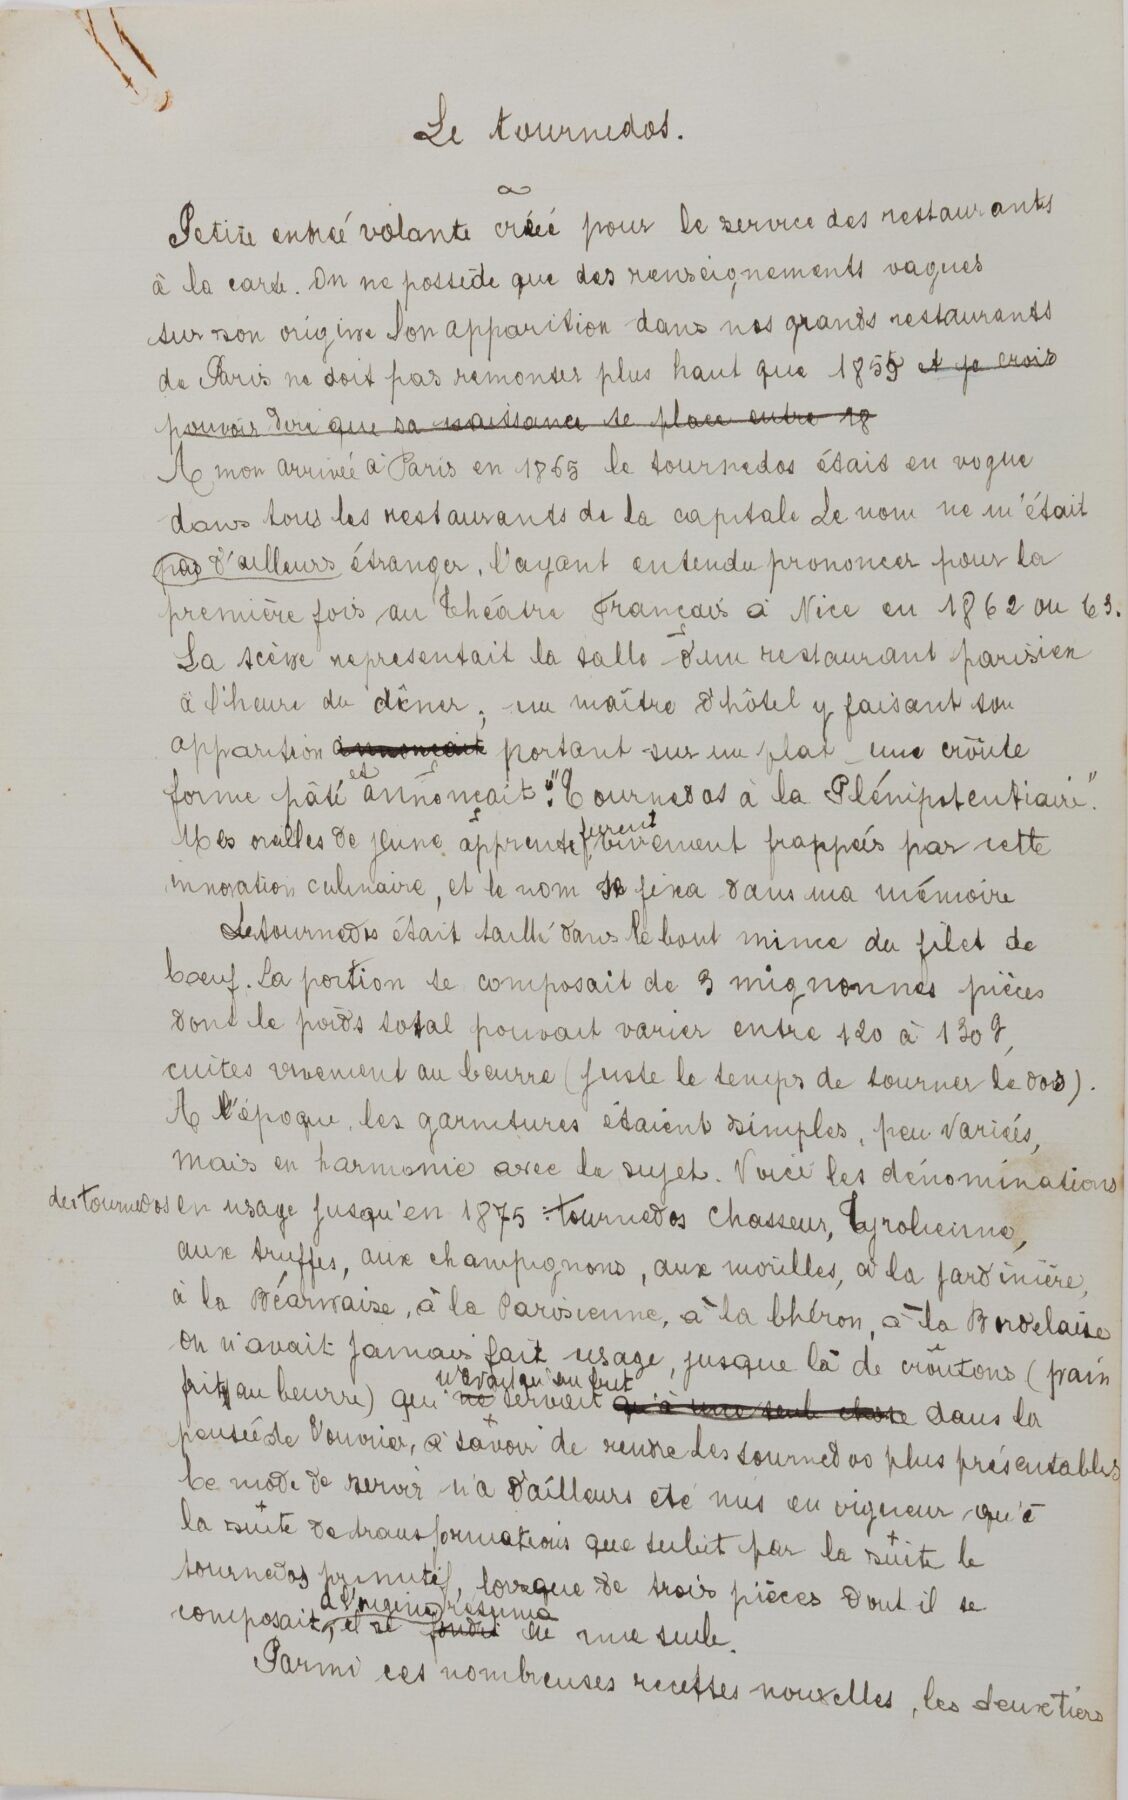 Le tournedos.
Petite entreé volante créée pour le service des restaurants
à la carte. On ne possède que des renseignements vagues
sur son origine Son apparition dans nos grands restaurants
de Paris ne doit pas remonter plus haut que 1855 et je crois
pouvoir dire que sa naissance se place entre 18
A mon arrivée à Paris en 1865 le tournedos étais en vogue
dans tous les restaurants de la capitale Le nom ne m'était
pas d'ailleurs étranger, l'ayant entendu prononcer pour la
première fois au théâtre Français à Nice en 1862 ou 63.
La scène representait la salle d'un restaurant parisien
à l'heure du dîner, un maître d'hôtel y faisant son
apparition annonçait portant sur un plat une croûte
forme pâté et annonçait: "Tournedos à la Plénipotentiaire".
Mes oreilles de jeune apprenti furent vivement frappeés par cette
innovation culinaire, et le nom se fixa dans ma mémoire
Le tournedos était taillé dans le bout mince du filet de
bœuf. La portion se composait de 3 mignonnes pièces
dont le poids total pouvait varier entre 120 à 130 g,
cuites vivement au beurre (juste le temps de tourner le dos).
A l'époque, les garnitures étaient simples, peu variées,
mais en harmonie avec le sujet. Voici les dénominations
des tournedos en usage jusqu'en 1875 : tournedos Chasseur, Tyrolienne,
aux truffes, aux champignons, aux morilles, à la jardinière,
à la Béarnaise, à la Parisienne, à la Choron, à la Bordelaise
On n'avait jamais fait usage, jusque là de croûtons (pain
frit au beurre) qui n'avait qu'un but ne servait qu'à une seule chose dans la
pensée de l'ouvrier, à savoir de rendre les tournedos plus présentables
Ce mode de servir n'a d'ailleurs été mis en vigueur qu'à
la suite de transformations que subit par la suite le
tournedos primitif, lorsque de trois pièces dont il se
composait à l'origine, il se résuma fondit en une seule.
Parmi ces nombreuses recettes nouvelles, les deux tiers